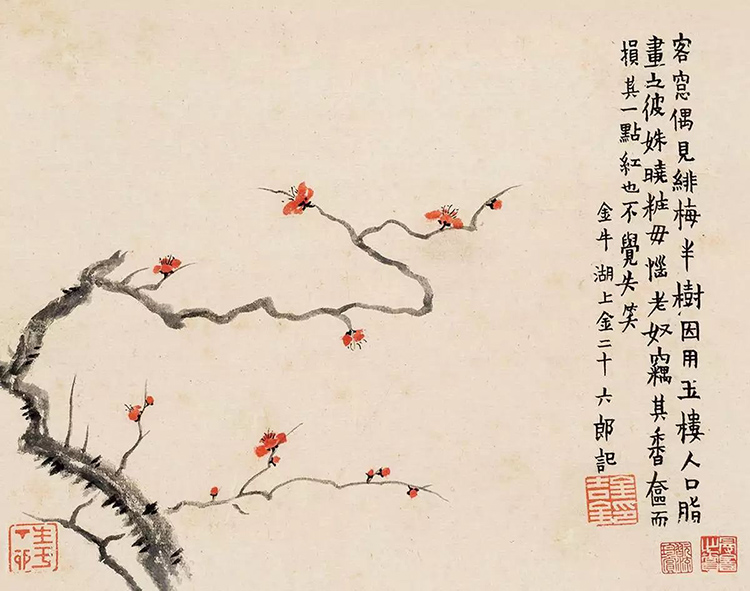 客窓偶見緋梅半樹因用玉樓人口脂
畫之彼姝曉粧毋惱老奴竊其香奩而
損其一點紅也不覺失笑
金牛湖上金二十六郎記
金吉金印